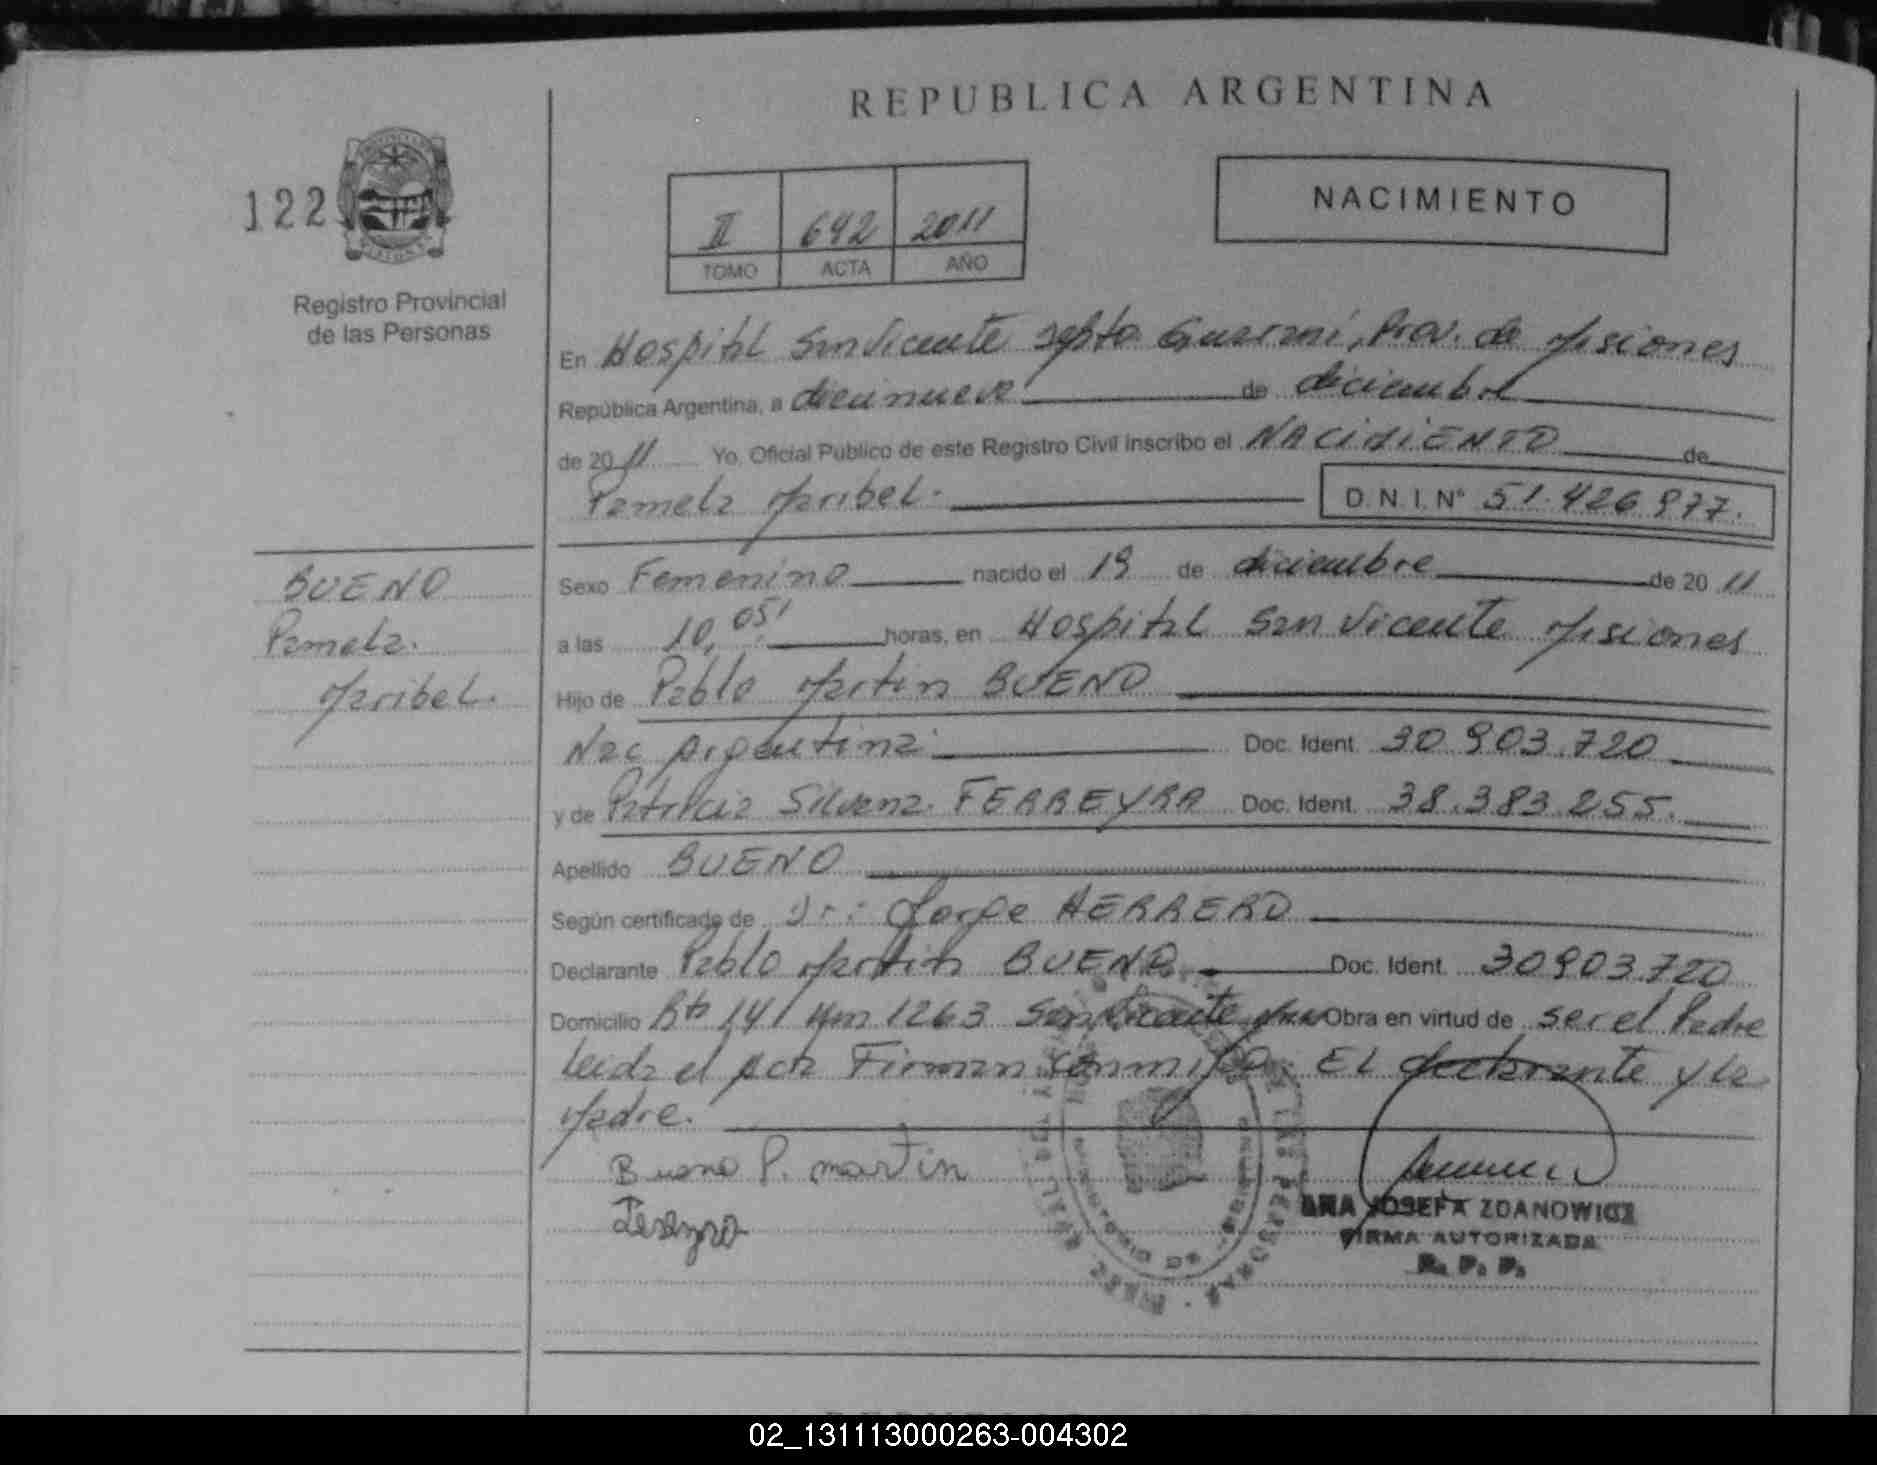 REPUBLICA ARGENTINA
122
NACIMIENTO
II 642 2011
TOMO ACTA AÑO
Registro Provincial
de las Personas
En Hospital San Vicente Depto Guaraní, Prov. de Misiones
República Argentina, a diecinueve de diciembre
de 2011 Yo, Oficial Público de este Registro Civil inscribo el NACIMIENTO de
Pamela Maribel. D.N.I. N° 51.426.977.
BUENO
Pamela
Maribel.
Sexo Femenino nacido el 19 de diciembre de 2011
a las 10,05' horas, en Hospital San Vicente Misiones
Hijo de Pablo Martin BUENO
Nac Argentina Doc. Ident. 30.903.720
y de Patricia Silvana FERREYRA Doc. Ident. 38.383.255.
Apellido BUENO
Según certificado de Dr: Jorge HERRERO
Declarante Pablo Martin BUENO Doc. Ident. 30903.720
Domicilio Rta 14 Km 1263 San Vicente Obra en virtud de ser el Padre
Leida el acta Firman conmigo El declarante y la
Madre.
Bueno P. martin
ANA JOSEFA ZDANOWICZ
FIRMA AUTORIZADA
R. P. P.
02_131113000263-004302